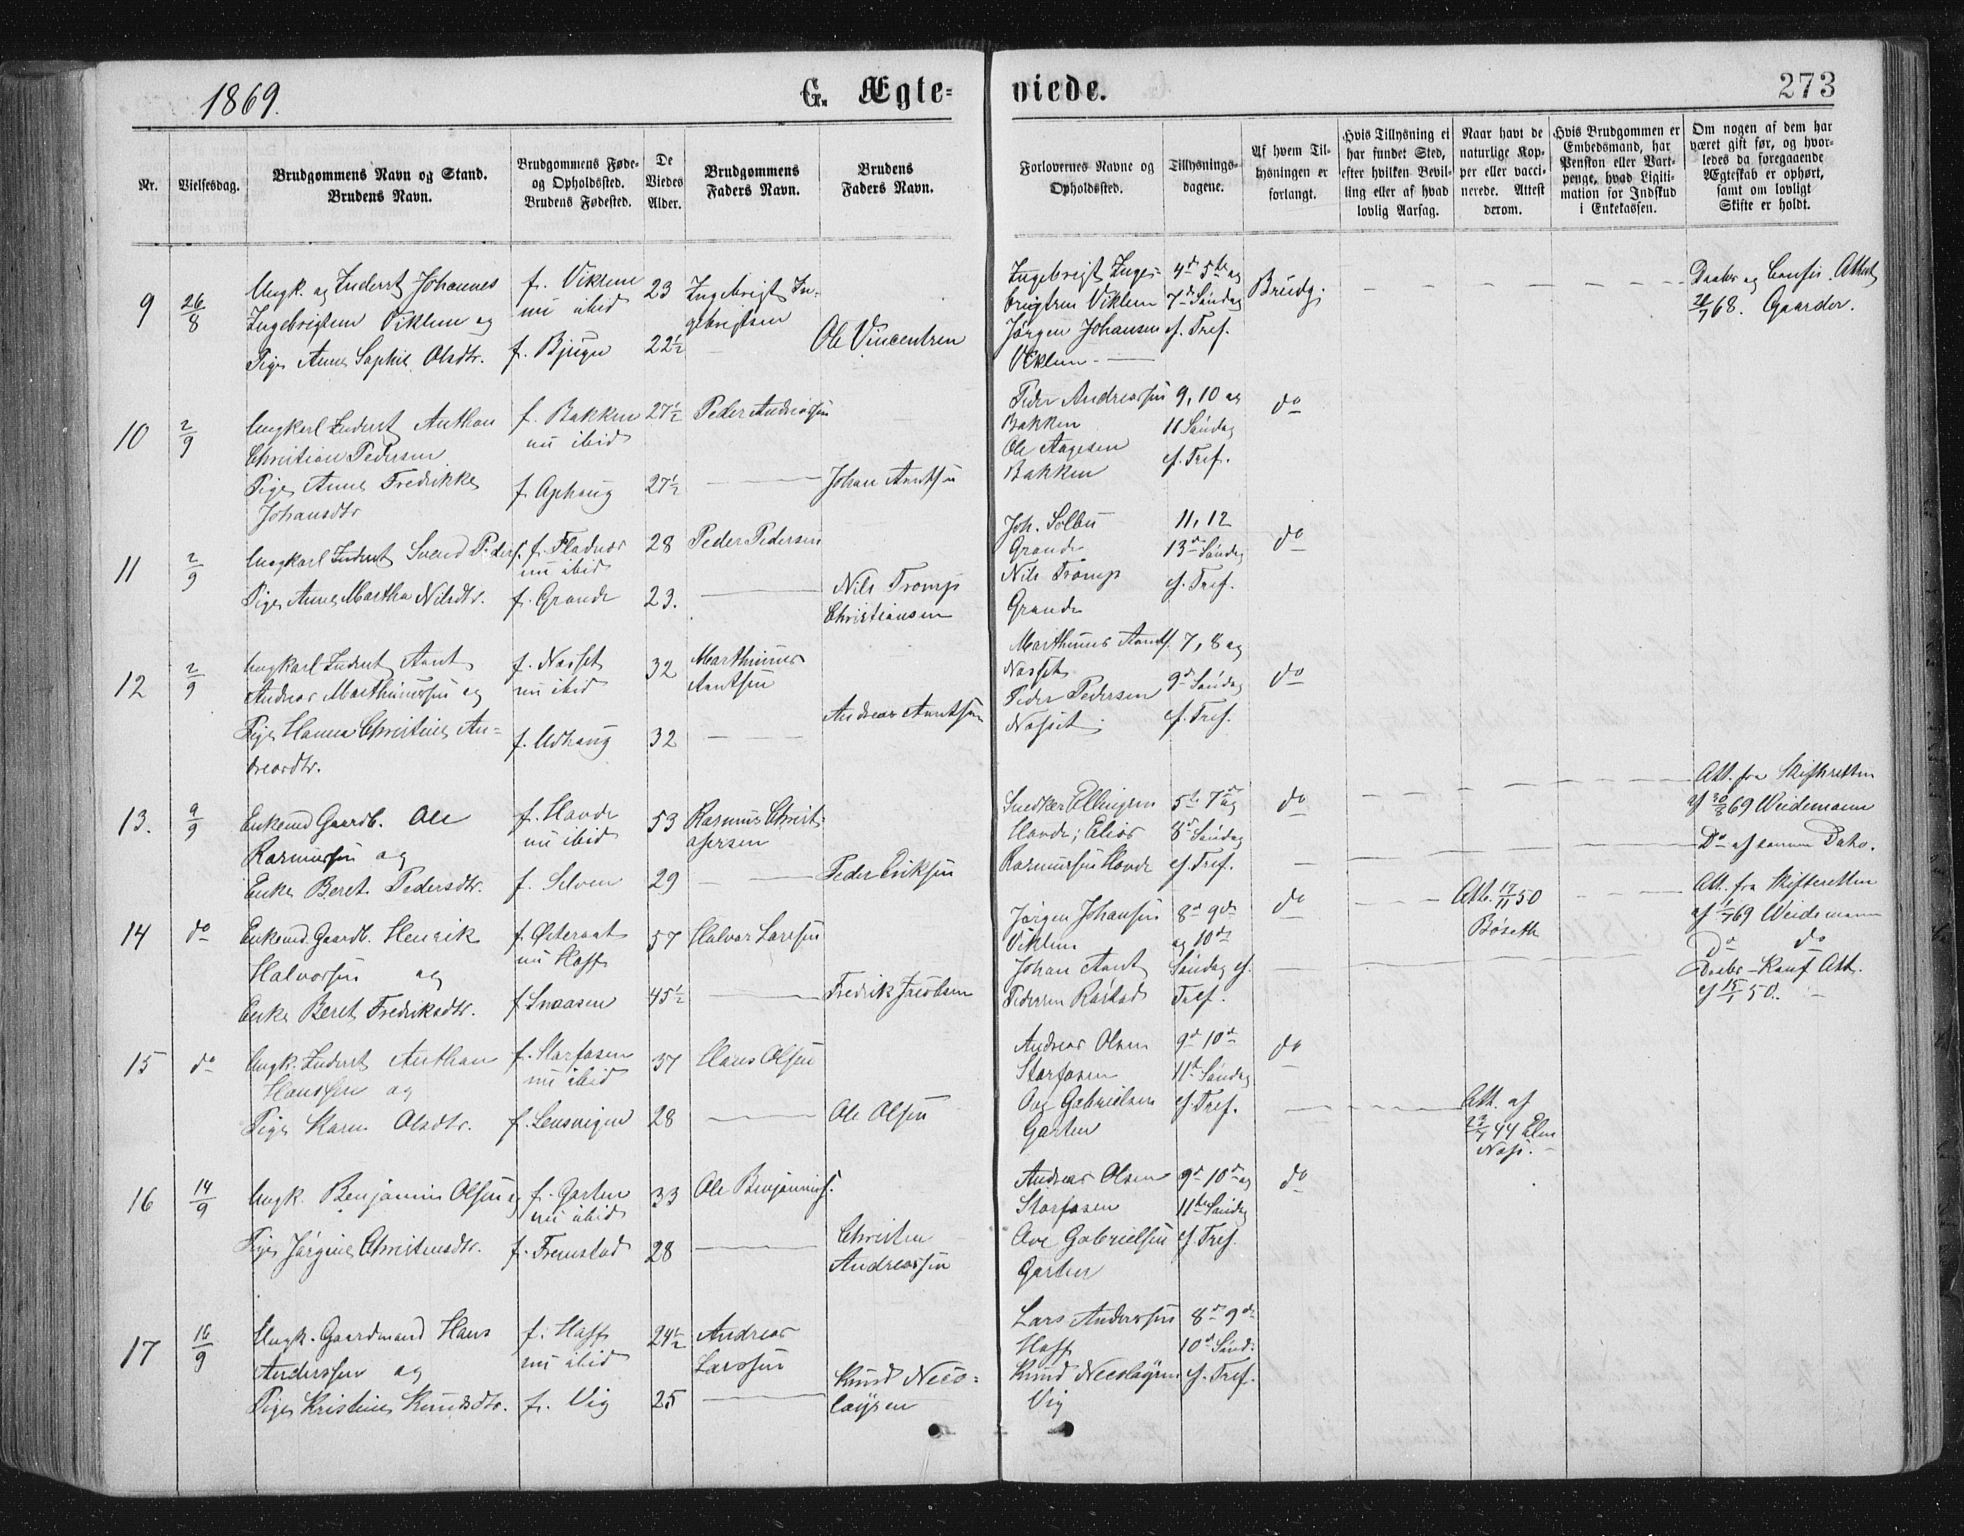 1869.
G. Ægte-
viede.
273
Nr.
Vielsesdag.
Brudgommens Navn og Stand.
Brudens Navn.
Brudgommens Føde-
og Opholdssted.
Brudens Fødested.
De
Viedes
Alder.
Brudgommens
Faders Navn.
Brudens
Faders Navn.
Forlovernes Navne og
Opholdssted.
Tillysnings-
dagene.
Af hvem Til-
lysningen er
forlangt.
Hvis Tillysning ei
har fundet Sted,
efter hvilken Bevil-
ling eller af hvad
lovlig Aarsag.
Naar havt de
naturlige Kop-
per eller vacci-
nerede. Attest
derom.
Hvis Brudgommen er
Embedsmand, har
Pension eller Vart-
penge, hvad Ligiti-
mation for Indskud
i Enkekassen.
Om nogen af dem har
været gift før, og hvor-
ledes da foregaaende
Ægteskab er ophørt,
samt om lovligt
Skifte er holdt.
9
26/8
Ungk. og Inderst Johannes
Ingebrigtsen Viklem og
Pige Anne Sophie Olsdtr.
f. Viklem
nu ibid
f. Bjugn
23
22½
Ingebrigt In-
gebrigtsen
Ole Vincentsen
Ingebrigt Inge-
brigtsen Viklem
Jørgen Johansen
Viklem
4de 5te og
7de Søndag
ef. Tref.
Brudg.
26/7 68. Gaarder.
10
2/9
Ungkarl Inderst Anthon
Christian Pedersen
Pige Anne Fredrikke
Johansdtr
f. Bakken
nu ibid
f. Ophaug
27½
27½
Peder Andreassen
Johan Arntsen
Peder Andreassen
Bakken
Ole Aagesen
Bakken
9, 10 og
11 Søndag
ef. Tref.
do
11
2/9
Ungkarl Inderst Svend Peders.
Pige Anne Martha Nilsdtr.
f. Fladnes
nu ibid
f. Grande
28
23.
Peder Pedersen
Nils Tromp
Christiansen
Joh. Solbu
Grande
Nils Tromp
Grande
11, 12
13de Søndag
ef. Tref.
do
12
2/9
Ungkarl Inderst Arnt
Andreas Marthinussen og
Pige Hanna Christine An-
dreasdtr.
f. Næsset
nu ibid
f. Udhaug
32
32
Marthinus
Arntsen
Andreas Arntsen
Marthinus Arnts.
Næsset
Peder Pedersen
Næsset
7, 8 og
9de Søndag
ef. Tref.
do
13.
9/9
Enkemd Gaardb. Ole
Rasmussen og
Enke Beret Pedersdtr.
f. Hovde
nu ibid
f. Selven
53
29
Rasmus Christ-
ofersen
Peder Eriksen
Snedker Ellingsen
Hovde; Elias
Rasmussen Hovde
5te 7de og
8de Søndag
ef. Tref.
do
Att. fra Skifteretten
af 30/8 69 Weidemann
Do af samme Dato.
14
do
Enkemd. Gaardb. Henrik
Halvorsen og
Enke Beret Fredriksdtr.
f. Østeraat
nu Hoff
f. Snaasen
57
45½
Halvor Larssen
Fredrik Jacobsen
Jørgen Johansen
Viklem
Johan Arnt
Pedersen Røstad
8de 9de
og 10de
Søndag ef.
Tref.
do
Att. 17/11 50
Att. fra Skifteretten
af 1/7 69 Weidemann
Do do
af 15/1 50.
15
do
Ungk. Inderst Anthon
Hanssen og
Pige Karen Olsdtr.
f. Storfosen
nu ibid
f. Lensvigen
37
28
Hans Olsen
Ole Olsen
Andreas Olsen
Storfosen
Ove Gabrielsen
Garten
9de 10de
11te Søndag
ef. Tref.
do
Att. af
16
14/9
Ungk. Benjamin Olsen og
Pige Jørgine Christensdtr.
f. Garten
nu ibid
f. Fremstad
33
28
Ole Benjamins.
Christen
Andreassen
Andreas Olsen
Storfosen
Ove Gabrielsen
Garten
9de 10de og
11te Søndag
ef. Tref.
do
17
16/9
Ungk. Gaardmand Hans
Anderssen og
Pige Kristine Knudsdtr.
f. Hoff
nu ibid
f. Vig
24½
25
Andreas
Larssen
Knud Nico-
laysen
Lars Anderssen
Hoff
Knud Nicolaysen
Vig
8de 9de
10de Sønd.
ef. Tref.